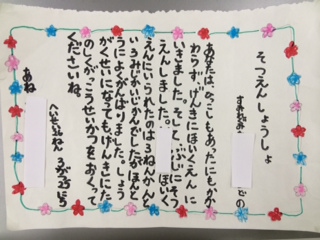 そつえんしょうしょ
すみれぐみ
どの
あなたは、ひっこしもあったにもかか
わらず、げんきにほいくえんに
いきました。そして、ぶじにそつ
えんしました。
ほいく
えんにいられたのは3ねんかんと
いうみじかいじかんでしたが、ほんと
うによくがんばりました。しょう
がくせいになっても、げんきにた
のしくがっこうせいかつをおくって
くださいね。
へいせい
ねん
3がつ
にち
あね